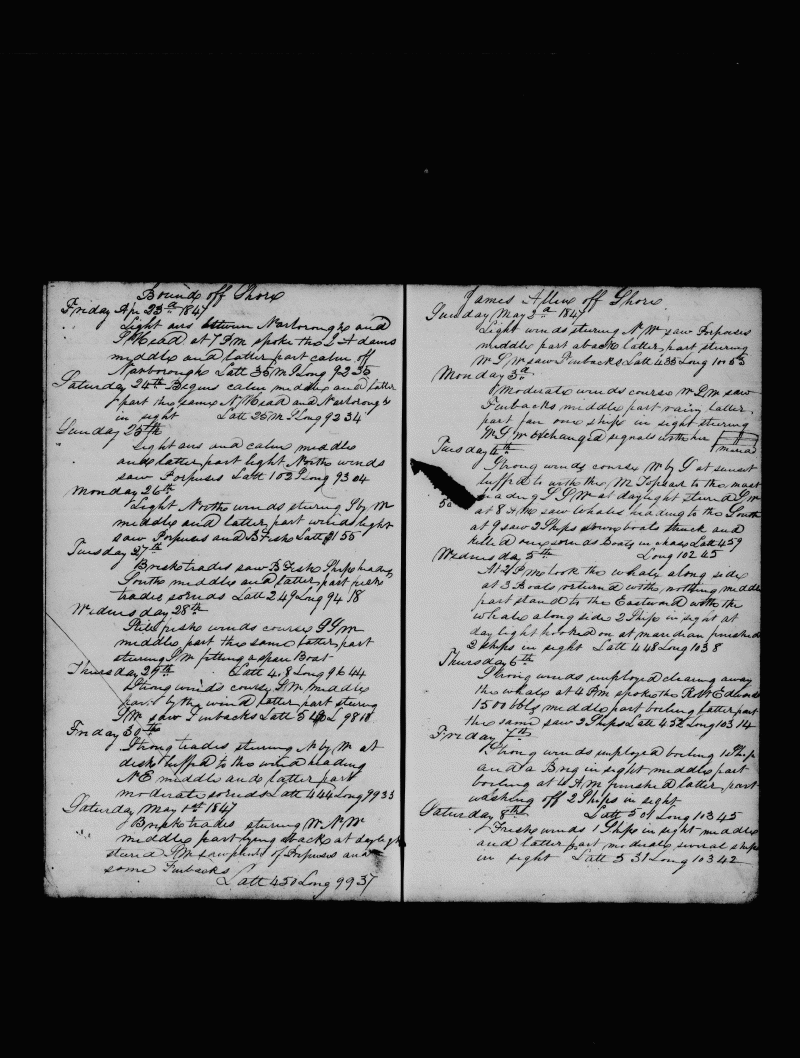 Bound off Shore
Friday Apr 23d 1847
Light airs between Narborough and
N Head at 7 PM spoke the J Adams
middle and latter part calm off
Narborough Latt 35 M S Long 92 35
Saturday 24th Begins calm middle and latter
part the same N Head and Narborough
in sight Latt 25 M S Long 92 34
Sunday 25th
Light airs and calm middle
and latter part light North winds
saw Porpuses Latt 1 02 S Long 93 04
Monday 26th
Light North winds stering S by W
middle and latter part winds light
saw Porpuses and B Fish Latt 1 55
Tuesday 27th
Brisk trades saw B Fish Ships heading
South middle and latter part fresh
trades so ends Latt 2 49 Long 94 18
Wednesday 28th
Still fresh winds course SSW
middle part the same latter part
stering SW fitting a spare Boat
Thursday 29th Latt 4.8 Long 96 44
Strong winds course SW middle
part by the wind latter part stering
SW saw Finbacks Latt 5 L 98 10
Friday 30th
Strong trades stering N by W at
dark luffed to the wind heading
NE middle and latter part
moderate so ends Latt 4 44 Long 99 33
Saturday May 1st 1847
Brisk trades stering W N W
middle part lying aback at daylight
stered SW saw plenty of Porpuses and
some Finbacks
Latt 4 50 Long 99 37
James Allen off Shore
Sunday May 2d 1847
Light winds stering N W saw Porpuses
middle part aback latter part stering
W S W saw Finbacks Latt 4 35 Long 100 53
Monday 3d
Moderate winds course W S W saw
Finbacks middle part rainy latter
part fair one ship in sight stering
W S W Exchanged signals with her
maria
Tuesday 4th
Strong winds course W by S at sunset
luffed to with the M Topsail to the mast
heading S S W at daylight stered S W
at 8 AM saw Whales heading to the South
at 9 saw 2 Ships boats struck and
killed one so ends Boats in chase Latt 4 59
Wednesday 5th Long 102 45
At 2 PM took the whale along side
at 3 Boats returned with nothing middle
part stand to the Eastward with the
whale along side 2 Ships in sight at
day light hooked on at meridian finished
2 ships in sight Latt 4 48 Long 103 8
Thursday 6th
Strong winds employed clearing away
the whale at 4 PM spoke the R Edward
1500 bbls middle part boiling latter part
the same saw 2 Ships Latt 4 52 Long 103 14
Friday 7th
Strong winds employed boiling 1 Ship
and a Brig in sight middle part
boiling at 4 AM finished latter part
washing off 2 Ships in sight
Saturday 8th Latt 5 01 Long 103 45
Fresh winds 1 Ships in sight middle
and latter part moderate several ships
in sight Latt 5 31 Long 103 42